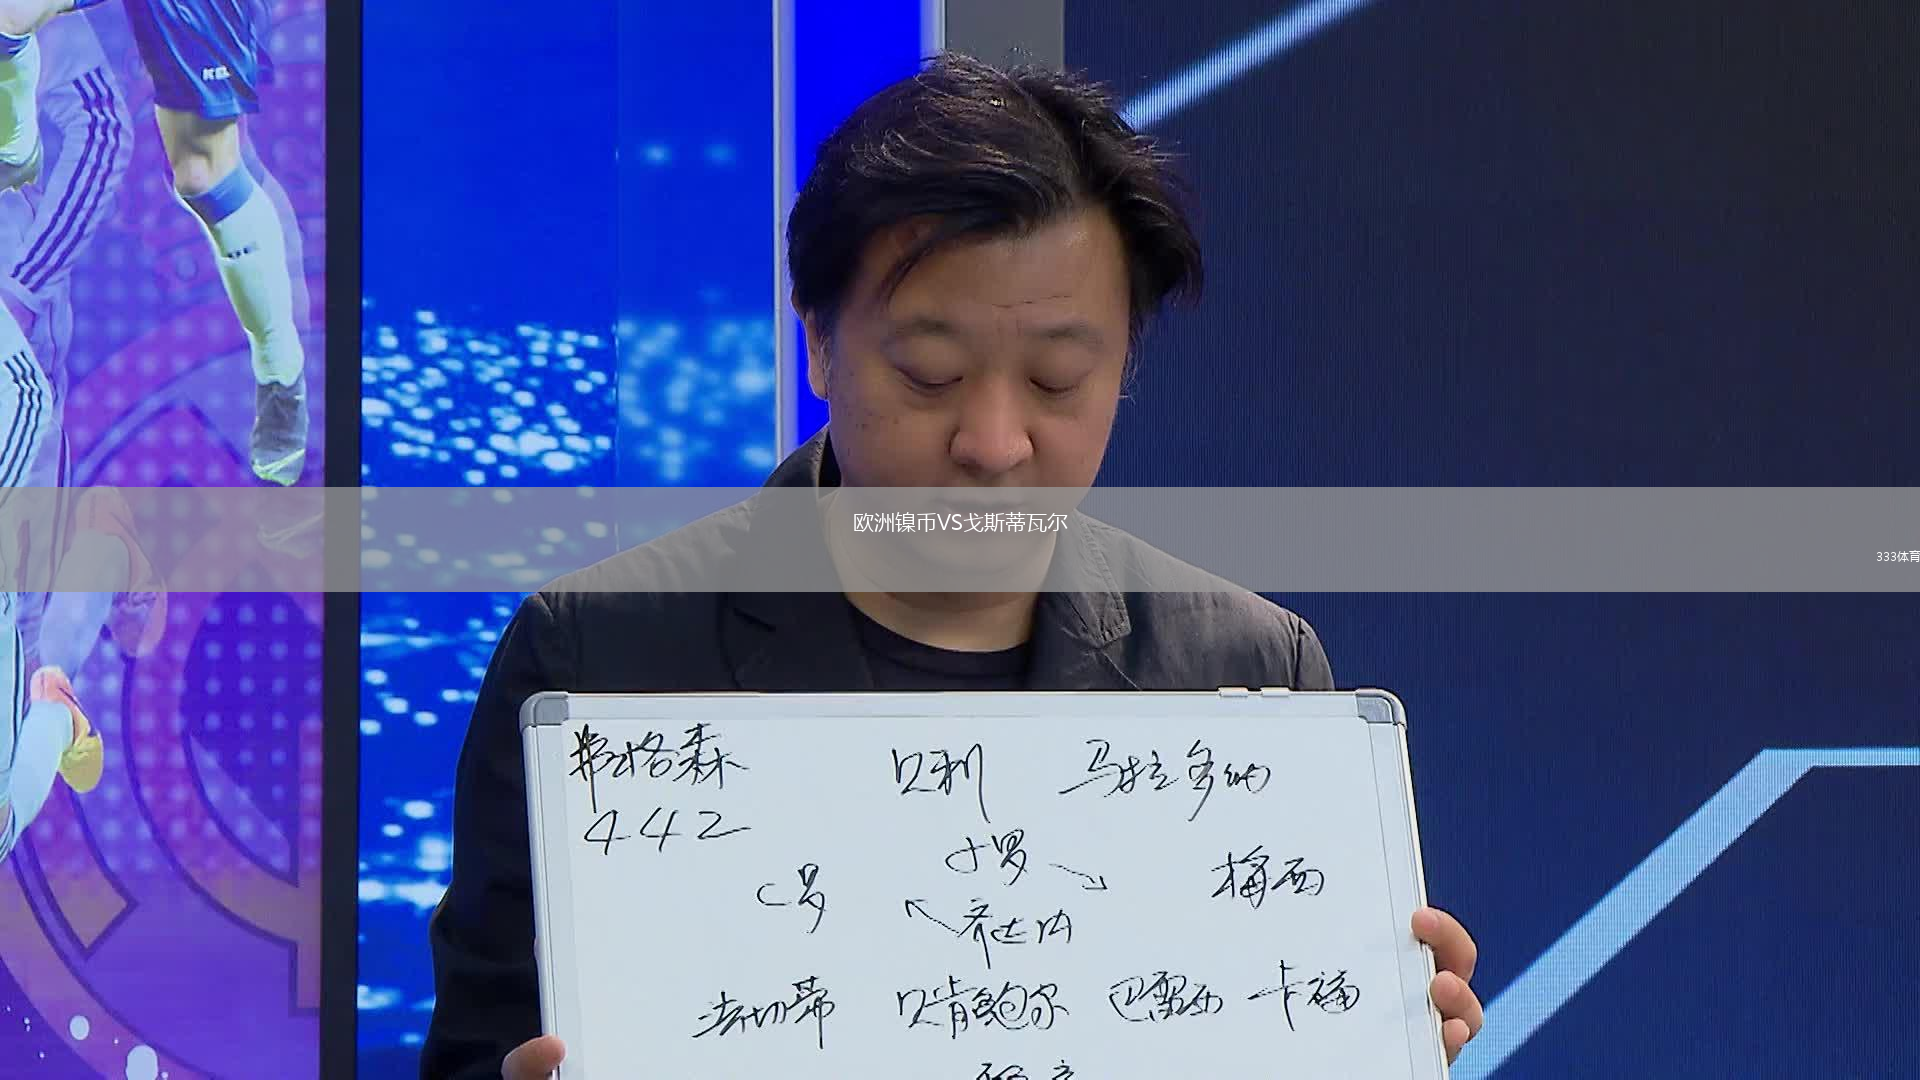 KEL
欧洲镍币VS戈斯蒂瓦尔
333体育
弗格森 贝利 马拉多纳
442
小罗
C罗 梅西
齐达内
法切蒂 贝肯鲍尔 巴雷西 卡福